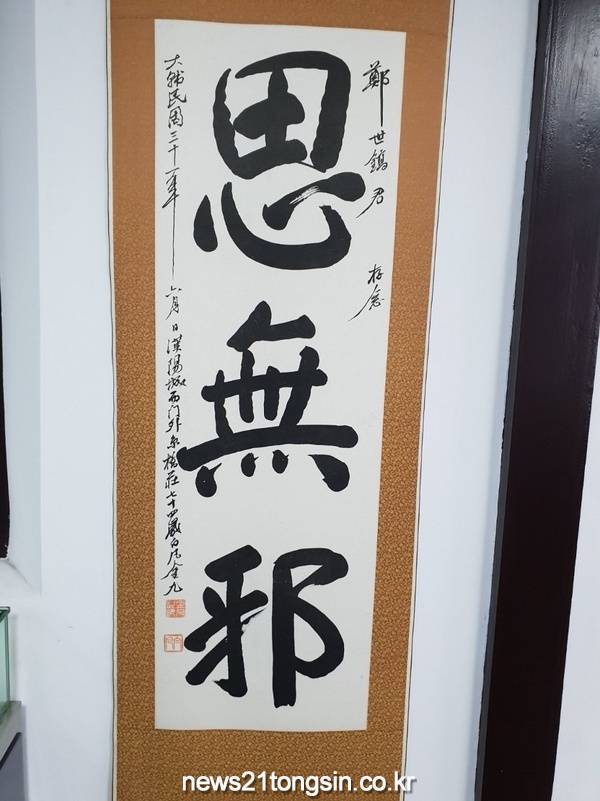 鄭世鎬君 存念
思無邪
大韓民國三十一年六月 日 漢陽城西門外京橋莊 七十四歲 白凡 金九
news21tongsin.co.kr